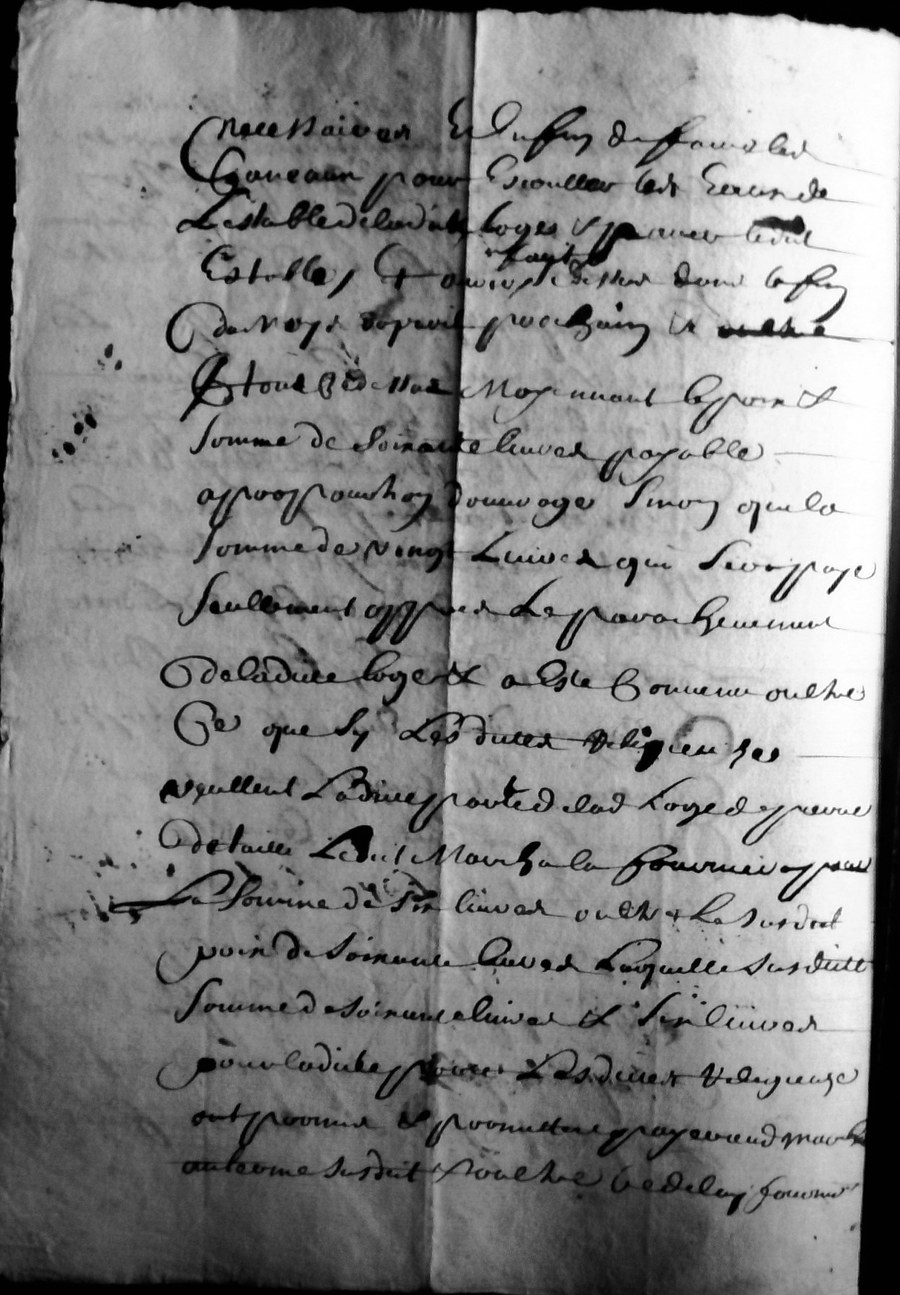 necessaires Et enfin de faire les
Caneaux pour Escouller les Eaux de
Lestable de lad loges & paver ledit
Estable, Et faict dessus dans la fin
du Moys prochain &
Et tout Ce dessus Moyennant le prix &
somme de soixante livres payable
a proportion douvrage sinon que la
somme de vingt Livres qui sera paye
seullement appres Le parachevement
de ladite loge & a Este Convenu oultre
Ce que sy Lesdittes Religieuses
veullent Ladite porte de lad Loge de pierre
de taille Ledict March la fournira pour
La somme de six livres oultre Le susdict
prix de soixante livres Laquelle susditte
somme de soixante livres & six livres
pour ladite porte Lesdittes Religieuse
ont promis & promettent payer aud March
au terme susdict & oultre ce de luy fournir